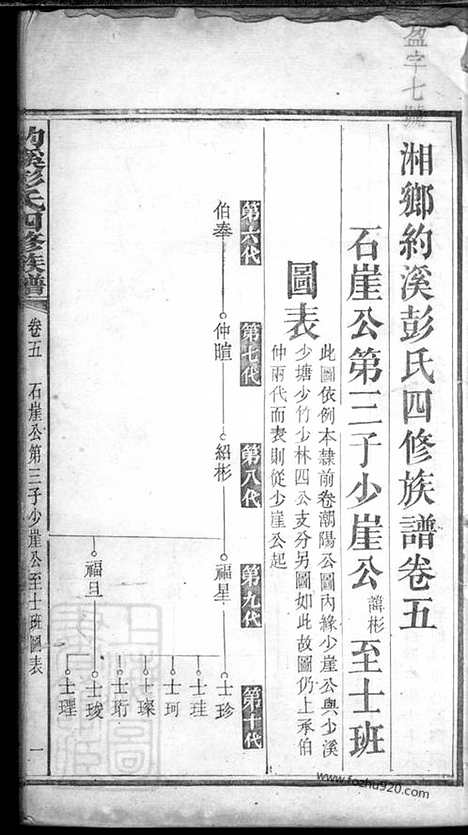 盈字七號
湘鄉約溪彭氏四修族譜卷五
石崖公第三子少崖公諱彬至士班
圖表
此圖依例本隸前卷潮陽公圖內緣少崖公與少溪
少塘少竹少林四公支分另圖如此故圖仍上承伯
仲兩代而表則從少崖公起
第六代
第七代
第八代
第九代
第十代
伯奉
仲暄
紹彬
福星
士珍
士珪
士珂
士璨
士珩
福旦
士駿
士瑾
約溪彭氏四修族譜
卷五
石崖公第三子少崖公至士班圖表
一
www.fozhu920.com